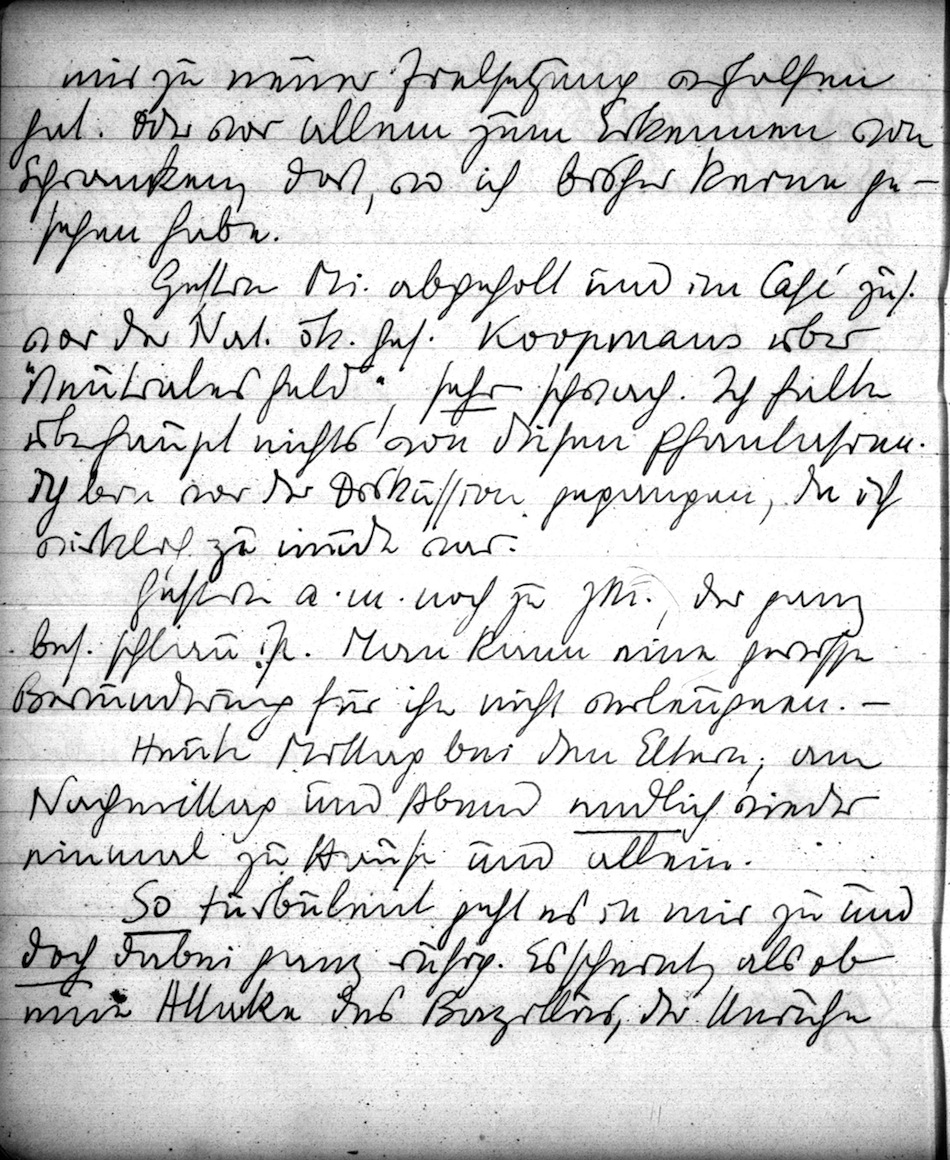 mir zu neuer Zielsetzung verholfen
hat. Oder vor allem zum Erkennen von
Schranken, dort, wo ich bisher keine ge-
sehen habe.
Gestern Mi. abgeholt und im Café zus.
vor der Nat. ök. Ges. Koopmans über
"Neutrales Geld", sehr schwach. Ich halte
überhaupt nichts von diesen Phantasien.
Ich bin vor der Diskussion gegangen, da ich
wirklich zu müde war.
Gestern a.m. noch zu , der ganz
bes. schlau ist. Man kann eine gewisse
Bewunderung für ihn nicht verleugnen. –
Heute Mittag bei den Eltern; am
Nachmittag und Abend endlich wieder
einmal zu Hause und allein.
So turbulent geht es in mir zu und
doch dabei ganz ruhig. Es scheint, als ob
eine Attacke des Bazillus, der Unruhe